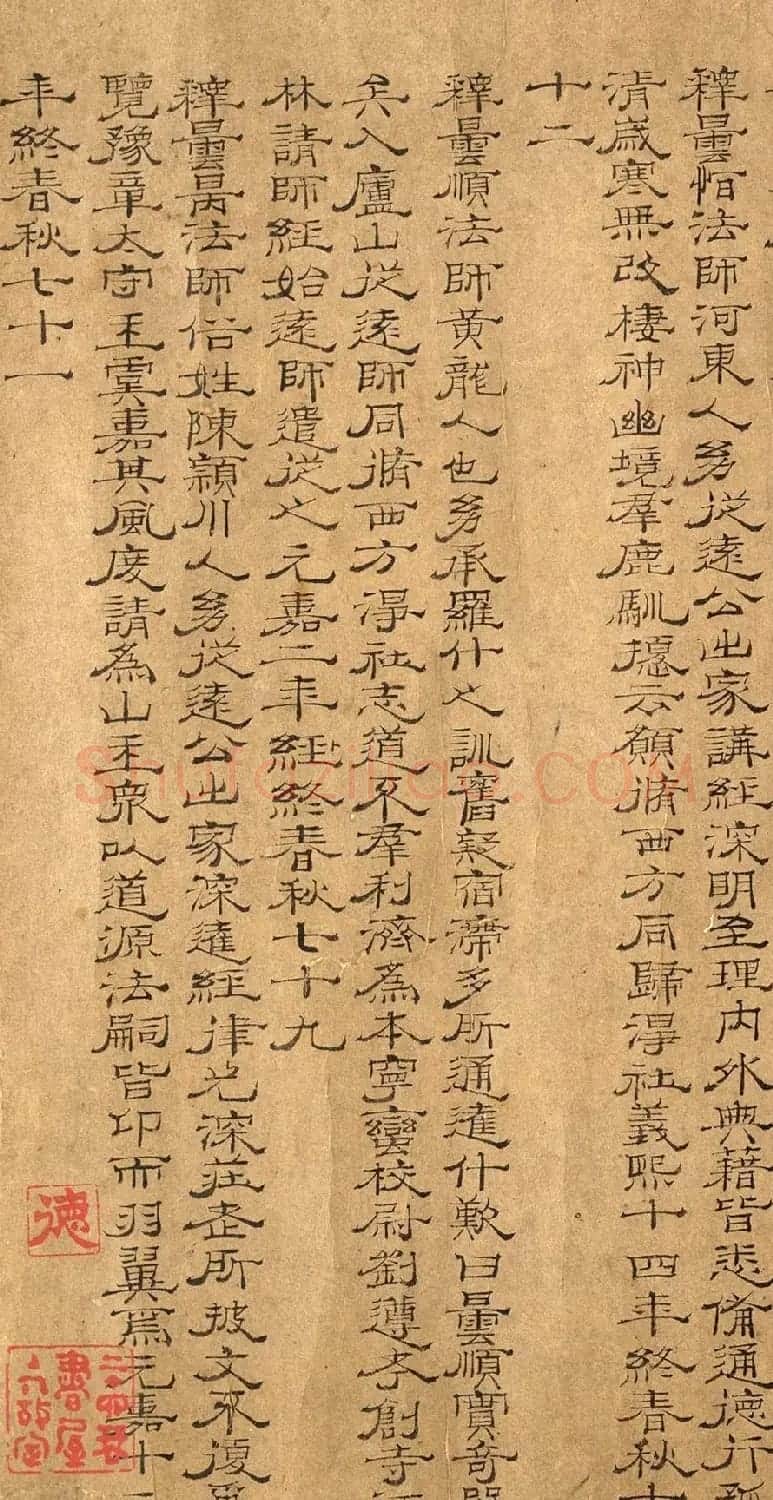 釋曇恒法師河東人㓜從遠公出家講經深明至理內外典藉皆悉備通德行孤
清歲寒無改棲神幽境羣鹿馴擾云願脩西方同歸淨社義熙十四年終春秋七
十二
釋曇順法師黃龍人也㓜承羅什之訓舊疑宿滯多所通達什歎曰曇順寶奇器
矣入廬山從遠師同脩西方淨社志道不羣利濟為本寧蠻校尉劉遵孝創寺江
林請師經始遠師遣從之元嘉二年經終春秋七十九
釋曇昺法師俗姓陳潁川人㓜從遠公出家深達經律尤深莊老所披文不復再
覽豫章太守王虞嘉其風度請為山主眾以道源法嗣皆卬而羽翼焉元嘉十二
年終春秋七十一
德
書屋
shufaziliao.com